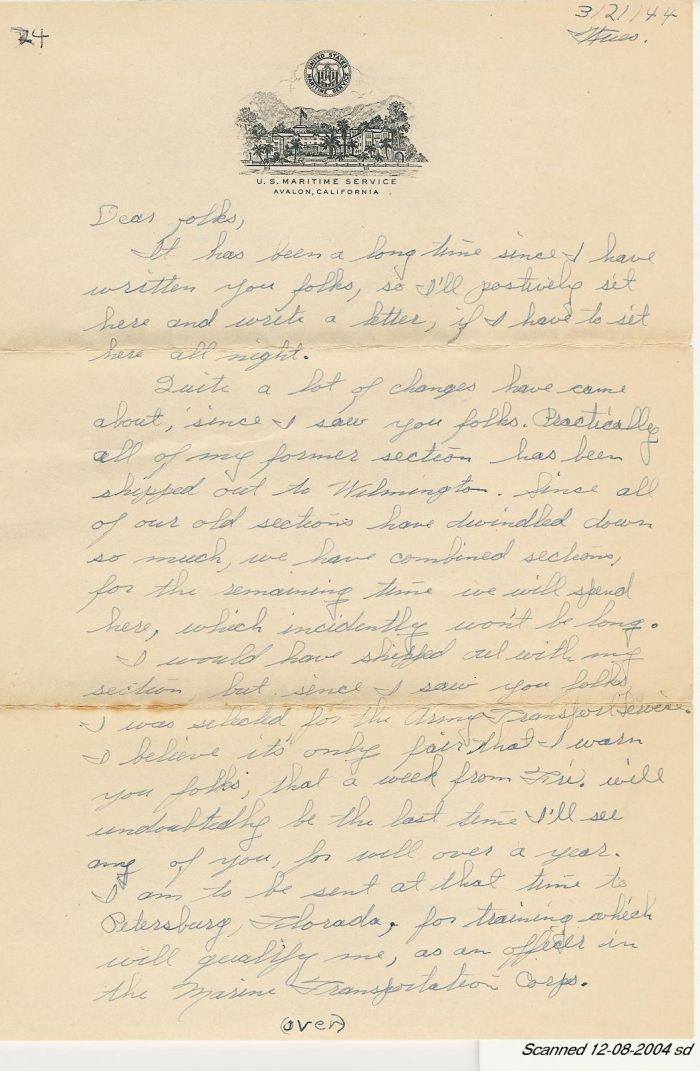 3/21/44
24
Tues.
UNITED STATES
MARITIME SERVICE
U. S. MARITIME SERVICE
AVALON, CALIFORNIA
Dear folks,
It has been a long time since I have
written you folks, so I'll postively set
here and write a letter, if I have to set
here all night.
Quite a lot of changes have came
about, since I saw you folks. Practically
all of my former section has been
shipped out to Wilmington. Since all
of our old sections have dwindled down
so much, we have combined sections,
for the remaining time we will spend
here, which incidently won't be long.
I would have shipped out with my
section but since I saw you folks,
I was selected for the Army Transport Service.
I believe it's only fair that I warn
you folks, that a week from Fri. will
undoubtedly be the last time I'll see
any of you, for will over a year.
I am to be sent at that time to
Petersburg, Florada, for training which
will qualify me, as an officer in
the Marine Transportation Corps.
(over)
Scanned 12-08-2004 sd